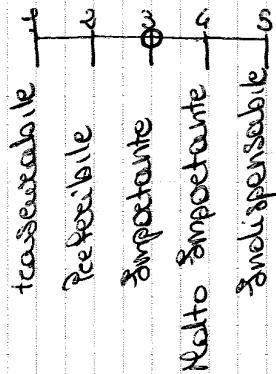 1 trascurabile
2 Preferibile
3 Importante
4 Molto Importante
5 Indispensabile